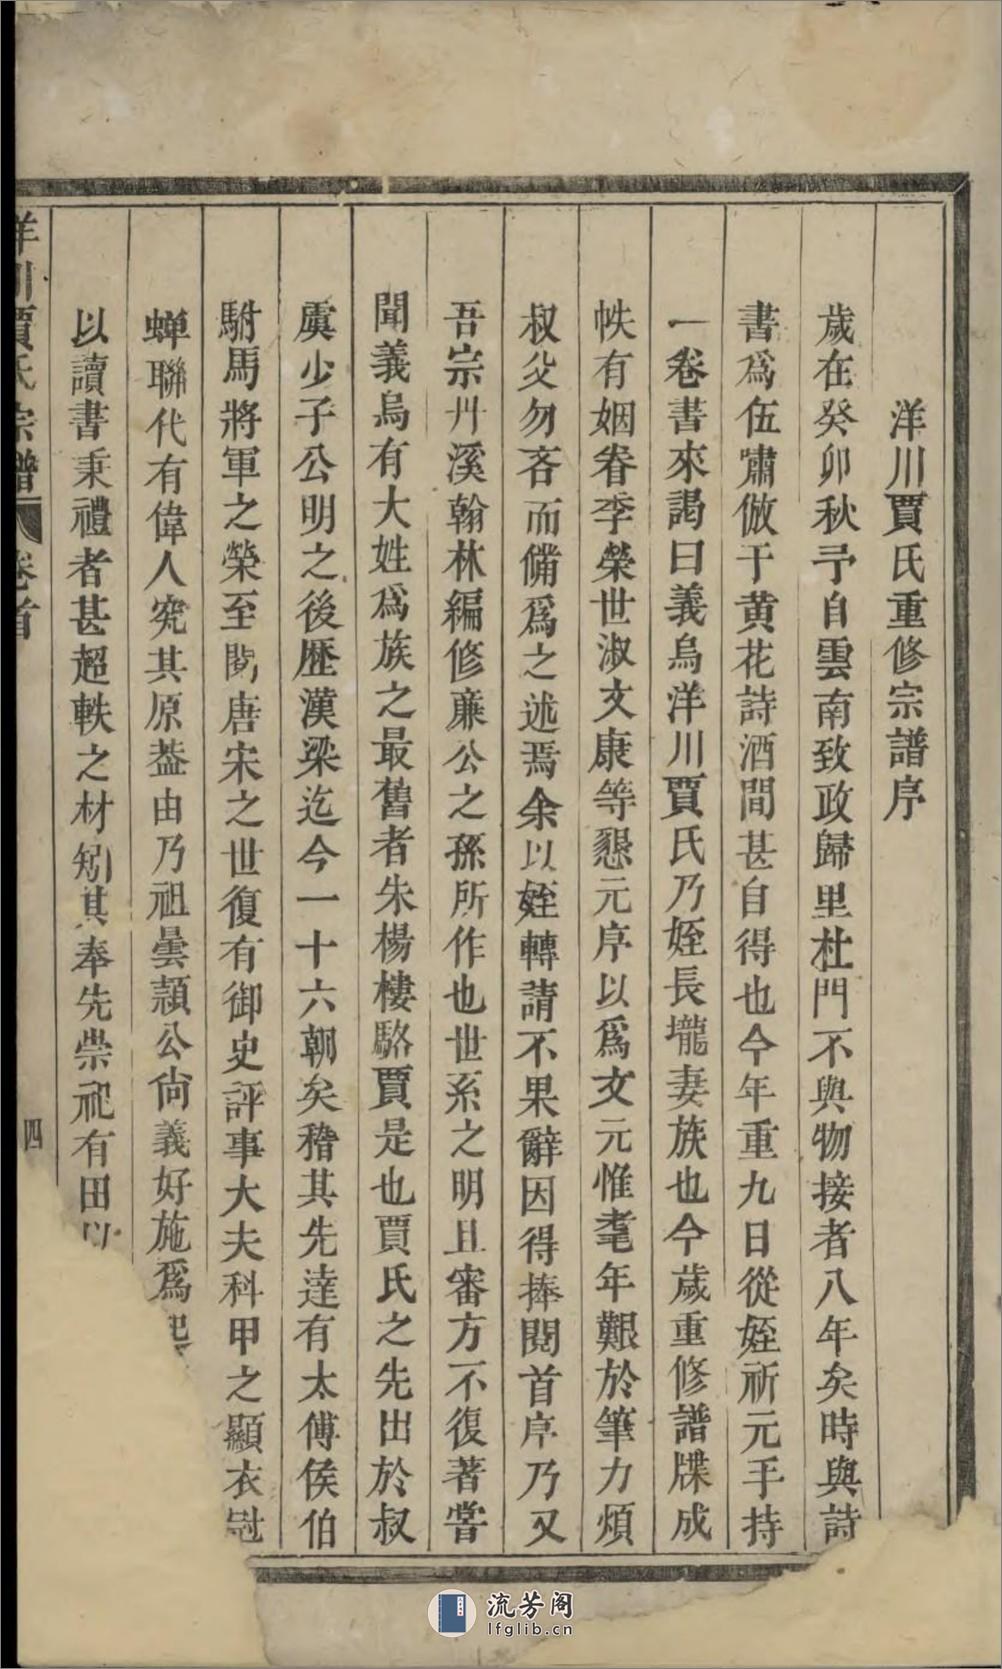 洋川賈氏重修宗譜序
歲在癸卯秋予自雲南致政歸里杜門不與物接者八年矣時與詩
書爲伍嘯傲于黄花詩酒間甚自得也今年重九日從姪祈元手持
一卷書來謁曰義烏洋川賈氏乃姪長壠妻族也今歲重修譜牒成
帙有姻眷李榮世淑文康等懇元序以爲文元惟耄年艱於筆力煩
叔父勿吝而備爲之述焉余以姪轉請不果辭因得捧閱首序乃又
吾宗廾溪翰林編修廉公之孫所作也世系之明且審方不復著嘗
聞義烏有大姓爲族之最舊者朱楊樓駱賈是也賈氏之先出於叔
虞少子公明之後歷漢梁迄今一十六朝矣稽其先達有太傅侯伯
駙馬將軍之榮至閱唐宋之世復有御史評事大夫科甲之顯衣冠
蟬聯代有偉人究其原葢由乃祖曇顥公尙義好施爲
以讀書秉禮者甚超軼之材矧其奉先崇祀有田以
洋川賈氏宗譜 卷首 四
流芳阁
lfglib.cn